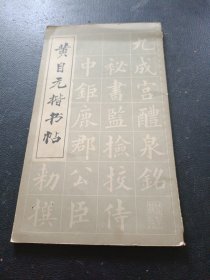 黄自元楷书帖
九成宫醴泉銘
秘書監撿挍侍
中鉅鹿郡公臣
勅撰